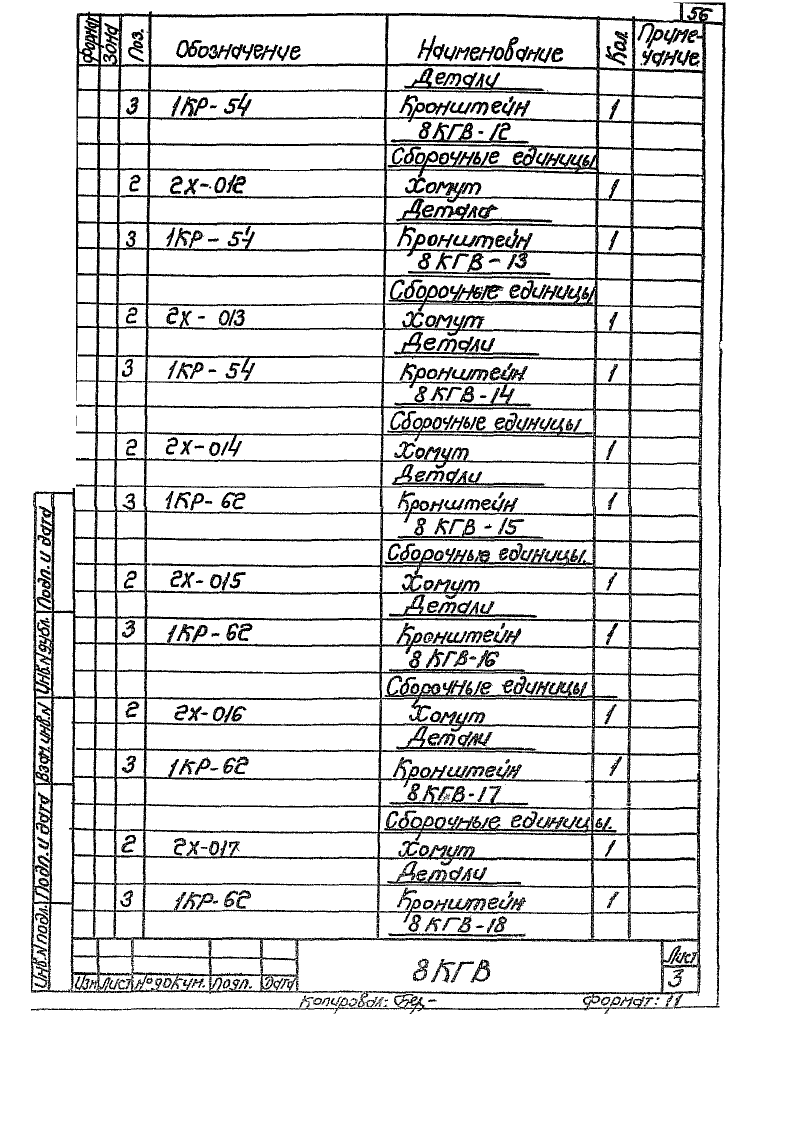 56
Формат Зона Поз. Обозначение Наименование Кол. Приме-
чание
Детали
3 1КР-54 Кронштейн 1
8КГВ-12
Сборочные единицы
2 2Х-012 Хомут 1
Детали
3 1КР-54 Кронштейн 1
8КГВ-13
Сборочные единицы
2 2Х-013 Хомут 1
Детали
3 1КР-54 Кронштейн 1
8КГВ-14
Сборочные единицы
2 2Х-014 Хомут 1
Детали
3 1КР-62 Кронштейн 1
8КГВ-15
Сборочные единицы.
2 2Х-015 Хомут 1
Детали
3 1КР-62 Кронштейн 1
8КГВ-16
Сборочные единицы
2 2Х-016 Хомут 1
Детали
3 1КР-62 Кронштейн 1
8КГВ-17
Сборочные единицы.
2 2Х-017 Хомут 1
Детали
3 1КР-62 Кронштейн 1
8КГВ-18
Инв.N подл. Подп. и дата Взам.инв.N Инв.N дубл. Подп. и дата
Изм Лист N°докум. Подп. Дата
8КГВ
Лист
3
Копировал: Формат: 11